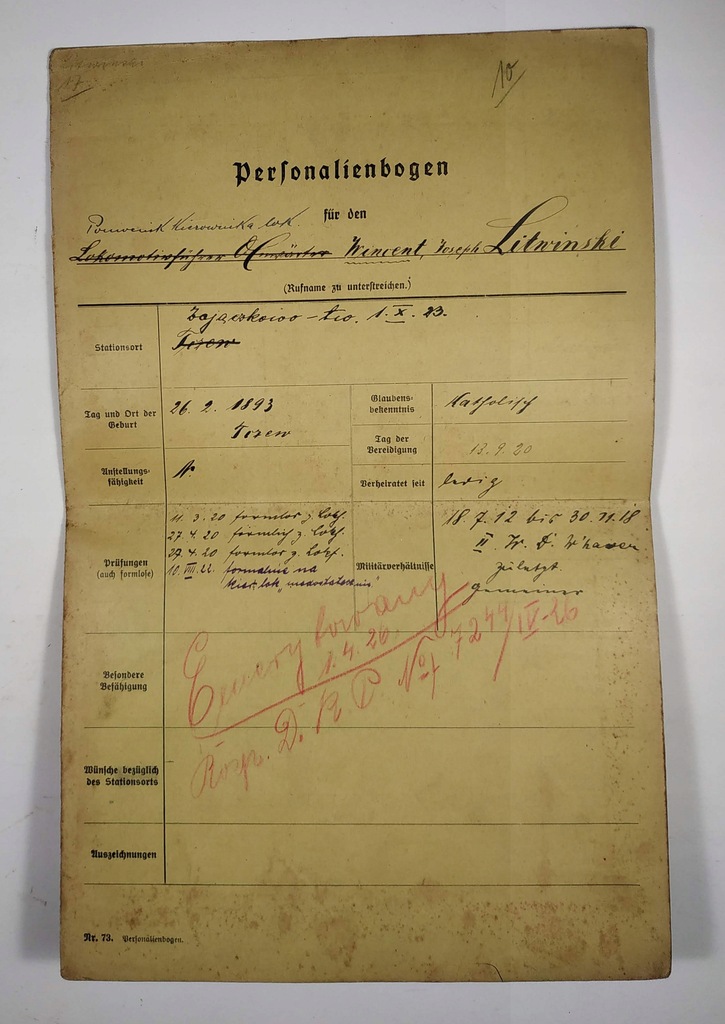 10
Personalienbogen
für den
Pomocnik Kierownika lok.
Lokomotivführer Wincent, Joseph Litwinski
(Rufname zu unterstreichen.)
Stationsort
Zajączkowo - tw. 1. X. 23.
Tczew
Tag und Ort der Geburt
26. 2. 1893
Tczew
Glaubens-
bekenntnis
Katholisch
Tag der
Vereidigung
13. 9. 20
Anstellungs-
fähigkeit
N.
Verheiratet seit
ledig
Prüfungen
(auch formlose)
11. 3. 20 formlos z. Lokh.
27. 4. 20 förmlich z. Lokh.
29. 4. 20 formlos z. Lokf.
10. VIII. 22. formalnie na
kier. lok.
Militärverhältnisse
18. 7. 12 bis 30. 11. 18
II. W. D. W'haven
zuletzt
Gemeiner
Emerytowany
1. 4. 26.
Rozp. D. K. P. No 7244/IV-26
Besondere
Befähigung
Wünsche bezüglich
des Stationsorts
Auszeichnungen
Nr. 73. Personalienbogen.